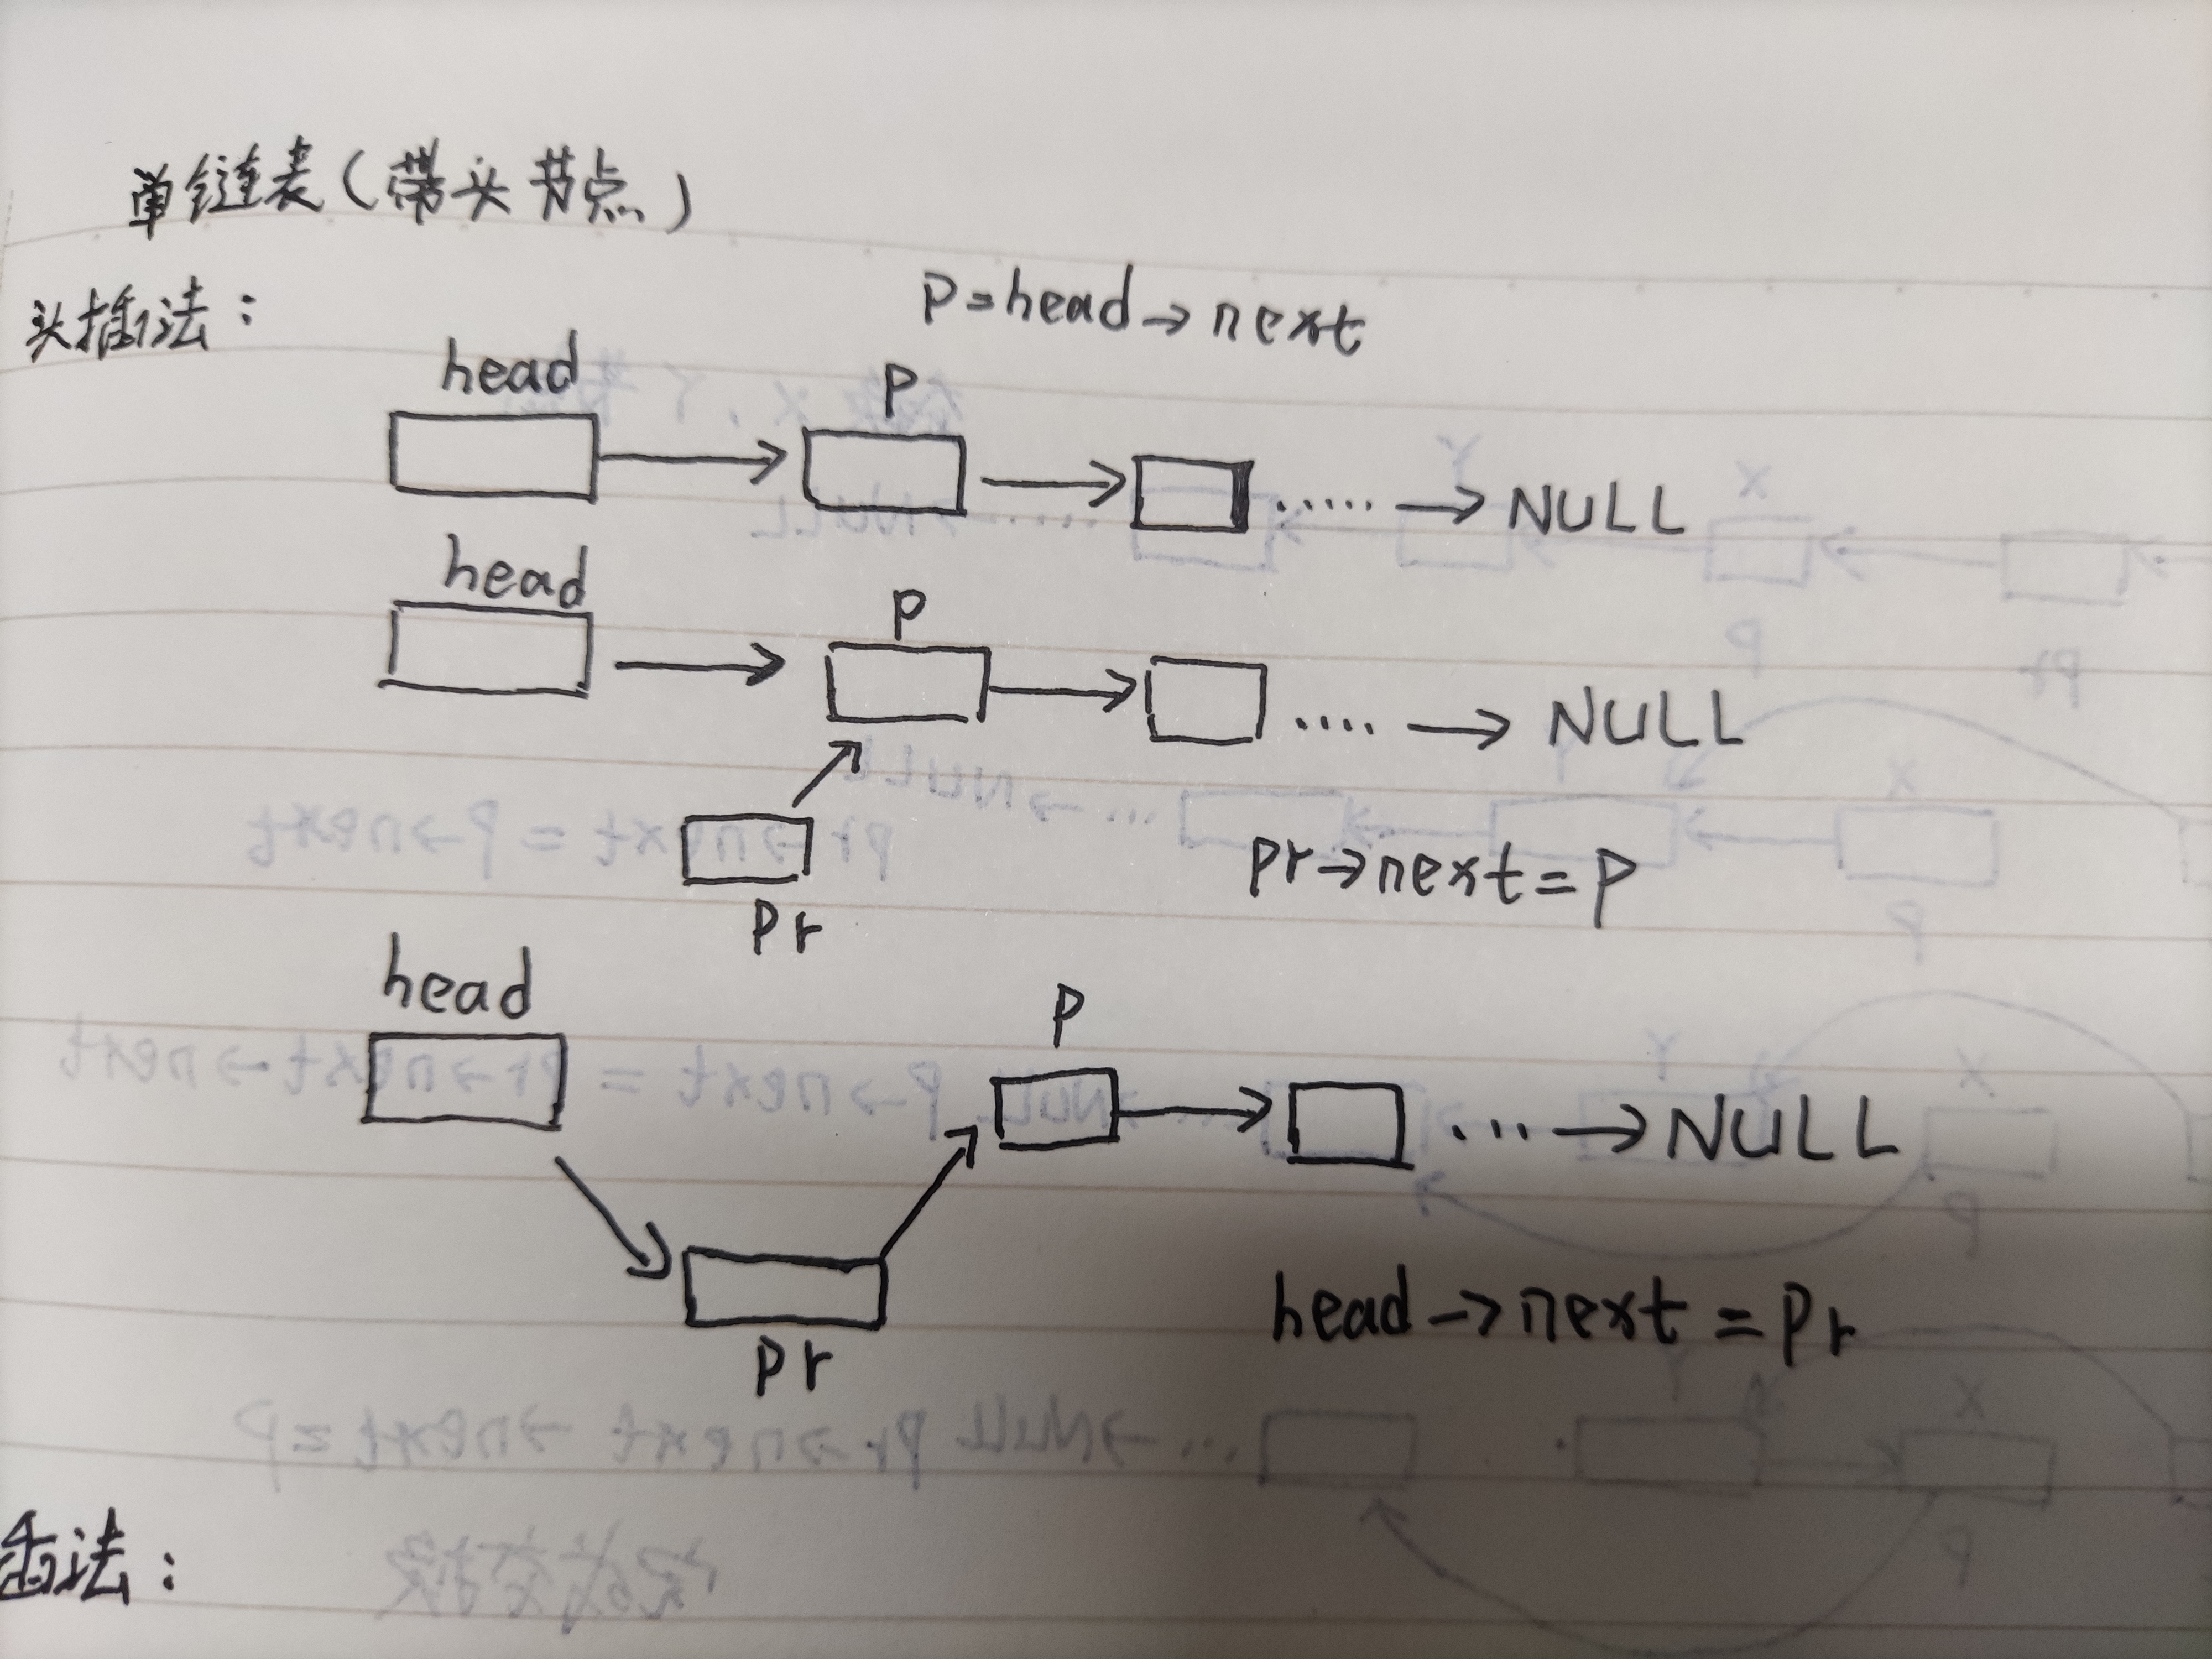 单链表(带头节点)
头插法:
P=head→next
head
P
NULL
head
P
NULL
Pr
Pr→next=P
head
P
NULL
Pr
head→next=Pr
插法: